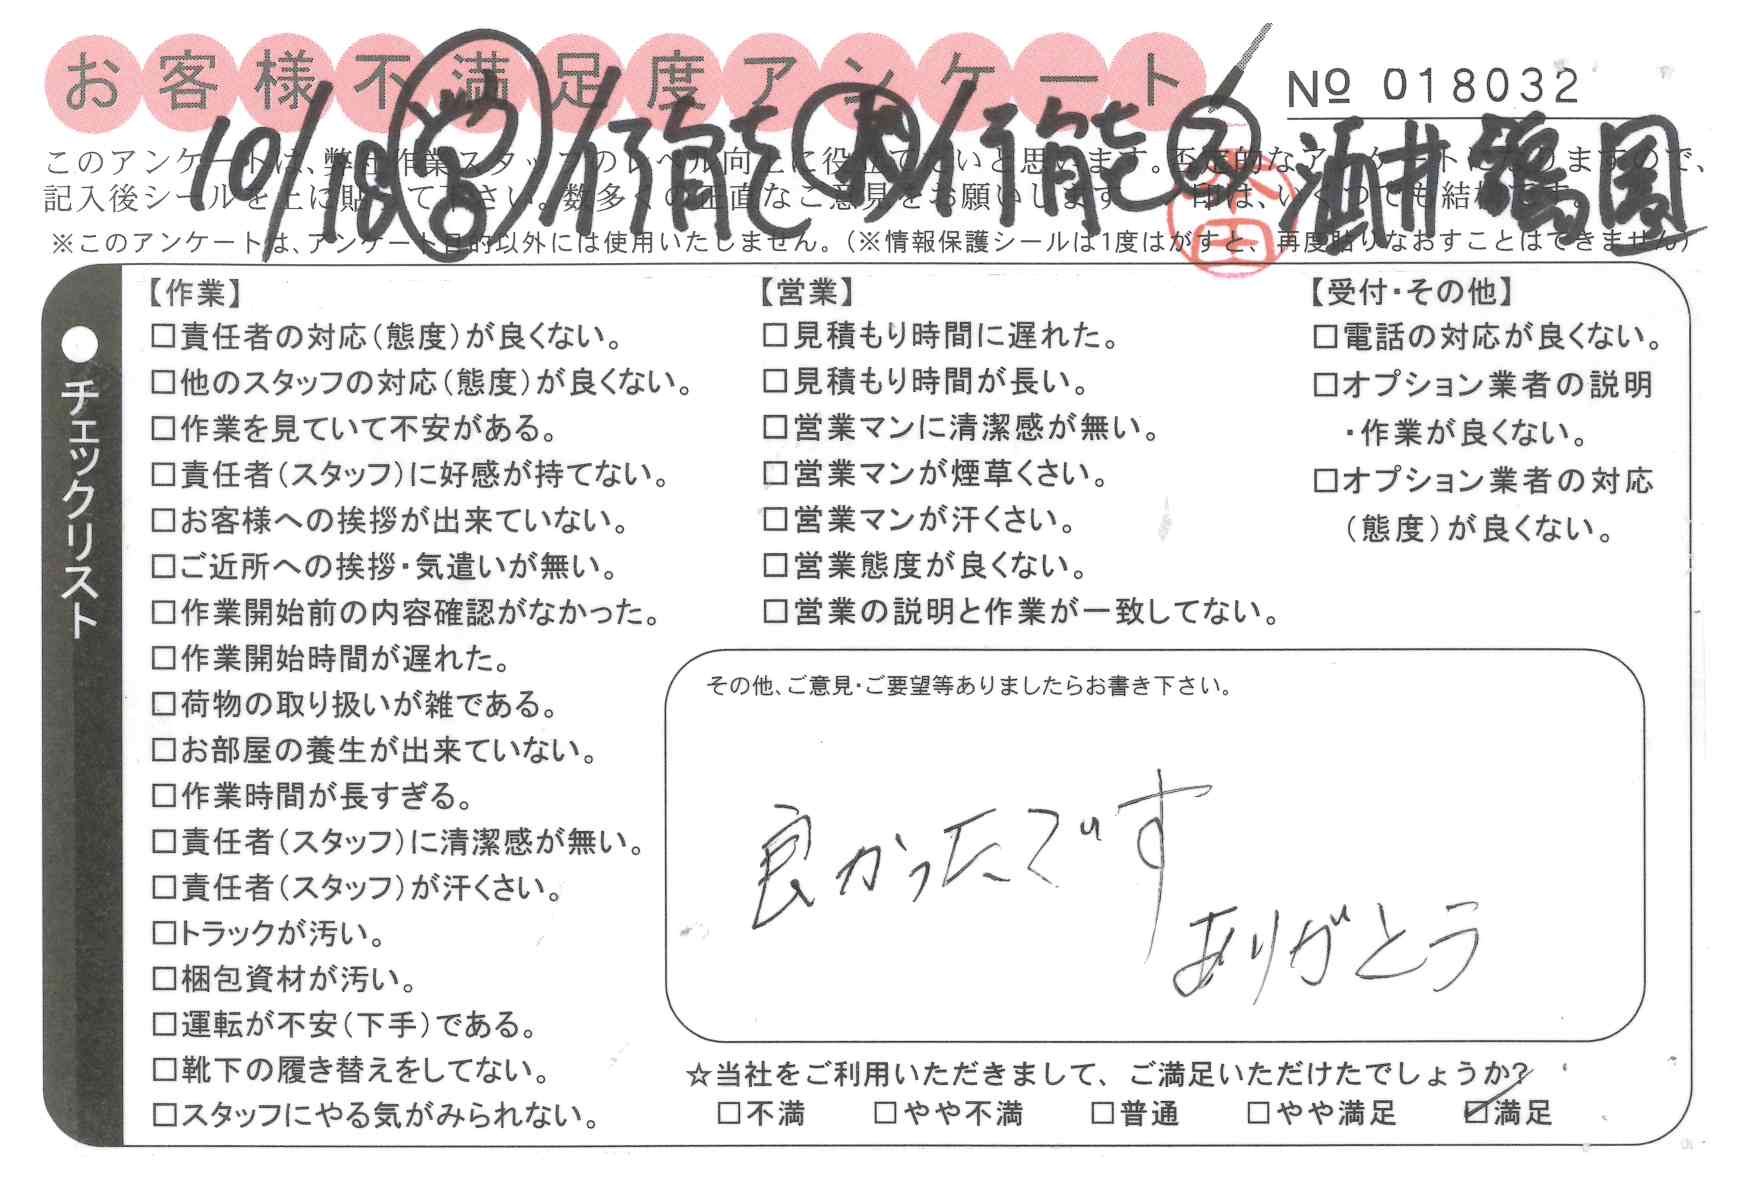 お客様不満足度アンケート
№ 018032
10/18
このアンケートは、弊社作業スタッフのレベル向上に役立てたいと思います。否定的なアンケートになりますので、
記入後シールを上に貼って下さい。数多くの正直なご意見をお願いします
※このアンケートは、アンケート目的以外には使用いたしません。(※情報保護シールは1度はがすと、再度貼りなおすことはできません)
●チェックリスト
【作業】
□責任者の対応(態度)が良くない。
□他のスタッフの対応(態度)が良くない。
□作業を見ていて不安がある。
□責任者(スタッフ)に好感が持てない。
□お客様への挨拶が出来ていない。
□ご近所への挨拶・気遣いが無い。
□作業開始前の内容確認がなかった。
□作業開始時間が遅れた。
□荷物の取り扱いが雑である。
□お部屋の養生が出来ていない。
□作業時間が長すぎる。
□責任者(スタッフ)に清潔感が無い。
□責任者(スタッフ)が汗くさい。
□トラックが汚い。
□梱包資材が汚い。
□運転が不安(下手)である。
□靴下の履き替えをしてない。
□スタッフにやる気がみられない。
【営業】
□見積もり時間に遅れた。
□見積もり時間が長い。
□営業マンに清潔感が無い。
□営業マンが煙草くさい。
□営業マンが汗くさい。
□営業態度が良くない。
□営業の説明と作業が一致してない。
【受付・その他】
□電話の対応が良くない。
□オプション業者の説明
・作業が良くない。
□オプション業者の対応
(態度)が良くない。
その他、ご意見・ご要望等ありましたらお書き下さい。
良かったです
ありがとう
☆当社をご利用いただきまして、ご満足いただけたでしょうか?
□不満 □やや不満 □普通 □やや満足 ☑満足